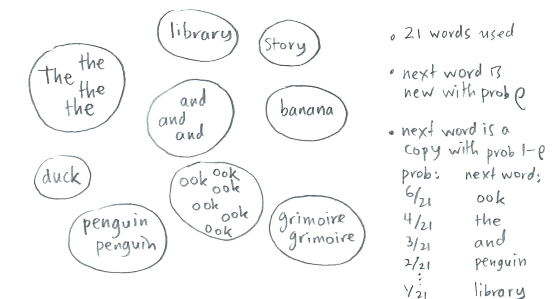 library
story
the
the
the
the
and
and
and
banana
duck
ook ook
ook
ook
ook
ook
penguin
penguin
grimoire
grimoire
• 21 words used
• next word is
new with prob ρ
• next word is a
copy with prob 1-ρ
prob: next word:
6/21 ook
4/21 the
3/21 and
2/21 penguin
⋮
1/21 library